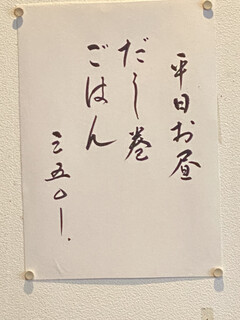 平日お昼
だし巻
ごはん
三五〇ー.